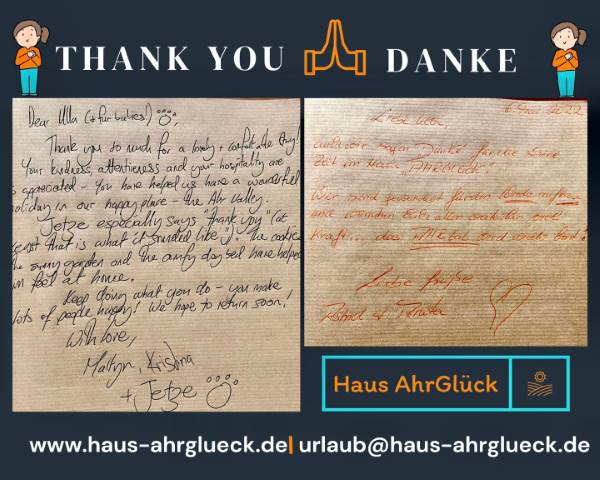 THANK YOU DANKE
Dear Ulla (+ fur babies!),
Thank you so much for a lovely + comfortable stay!
Your kindness, attentiveness and your hospitality are
appreciated - You have helped us have a wonderful
holiday in our happy place - the Ahr Valley.
Jetze especially says "Thank you" (at
least that is what it sounded like!). The cookies
the sunny garden and the comfy day bed have helped
him feel at home.
Keep doing what you do - you make
lots of people happy! We hope to return soon!
With love,
Martyn, Kristina
+ Jetze
6. 2022
Liebe Ulla,
auch wir sagen Danke für die schöne
Zeit im Haus AHRGLÜCK!
Wir sind
und wünschen Euch allen weiterhin viel
Kraft... das AHRtal
Liebe Grüße
Haus AhrGlück
www.haus-ahrglueck.de| urlaub@haus-ahrglueck.de